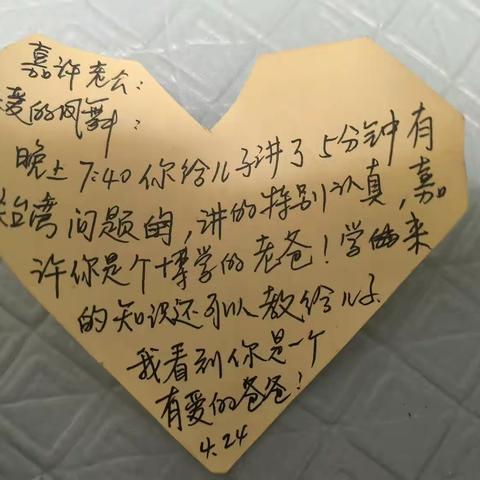 嘉许老公:
爱的凤舞:
晚上7:40你给儿子讲了5分钟有
关台湾问题的,讲的特别认真,嘉
许你是个博学的老爸!学来
的知识还可以教给儿子
我看到你是一个
有爱的爸爸!
4.24